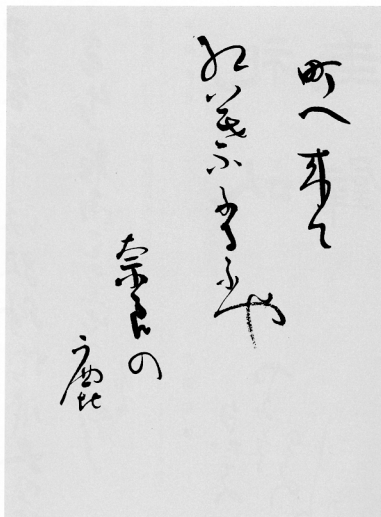 町へ来て
紅葉ふるふや
奈良の
鹿